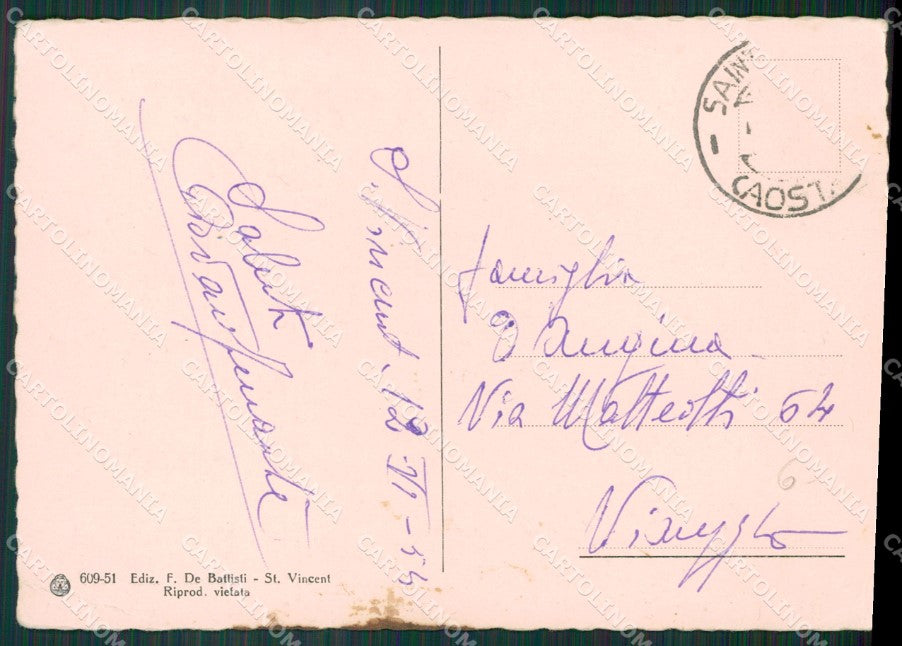 S. Vincent, 12-VI-54
Saluti
Famiglia
D'Angina
Via Matteotti 64
Viareggio
6
SAINT
(AOSTA
609-51 Ediz. F. De Battisti - St. Vincent
Riprod. vietata
CARTOLINOMANIA